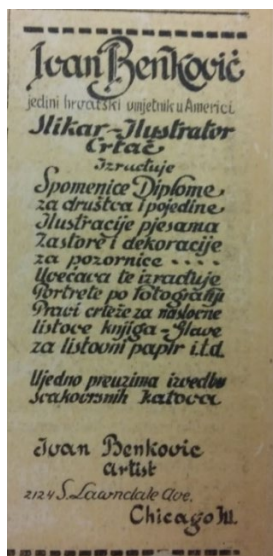 Ivan Benković
jedini hrvatski umjetnik u Americi.
Slikar-Ilustrator
Crtač
Izrađuje
Spomenice Diplome
za društva i pojedine
Ilustracije pjesama
Zastore i dekoracije
za pozornice ....
Uvećava te izrađuje
Portrete po fotografiji
Pravi crteže za naslovne
listove knjiga - Glave
za listovni papir i.t.d.
Ujedno preuzima izvedbu
svakovrsnih
Ivan Benkovic
artist
2124 S. Lawndale Ave,
Chicago Ill.